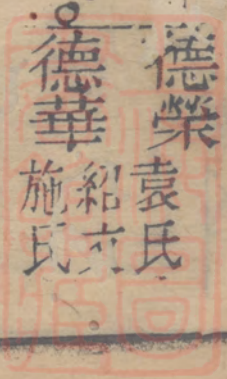 德榮
袁氏
紹文
德華
施氏